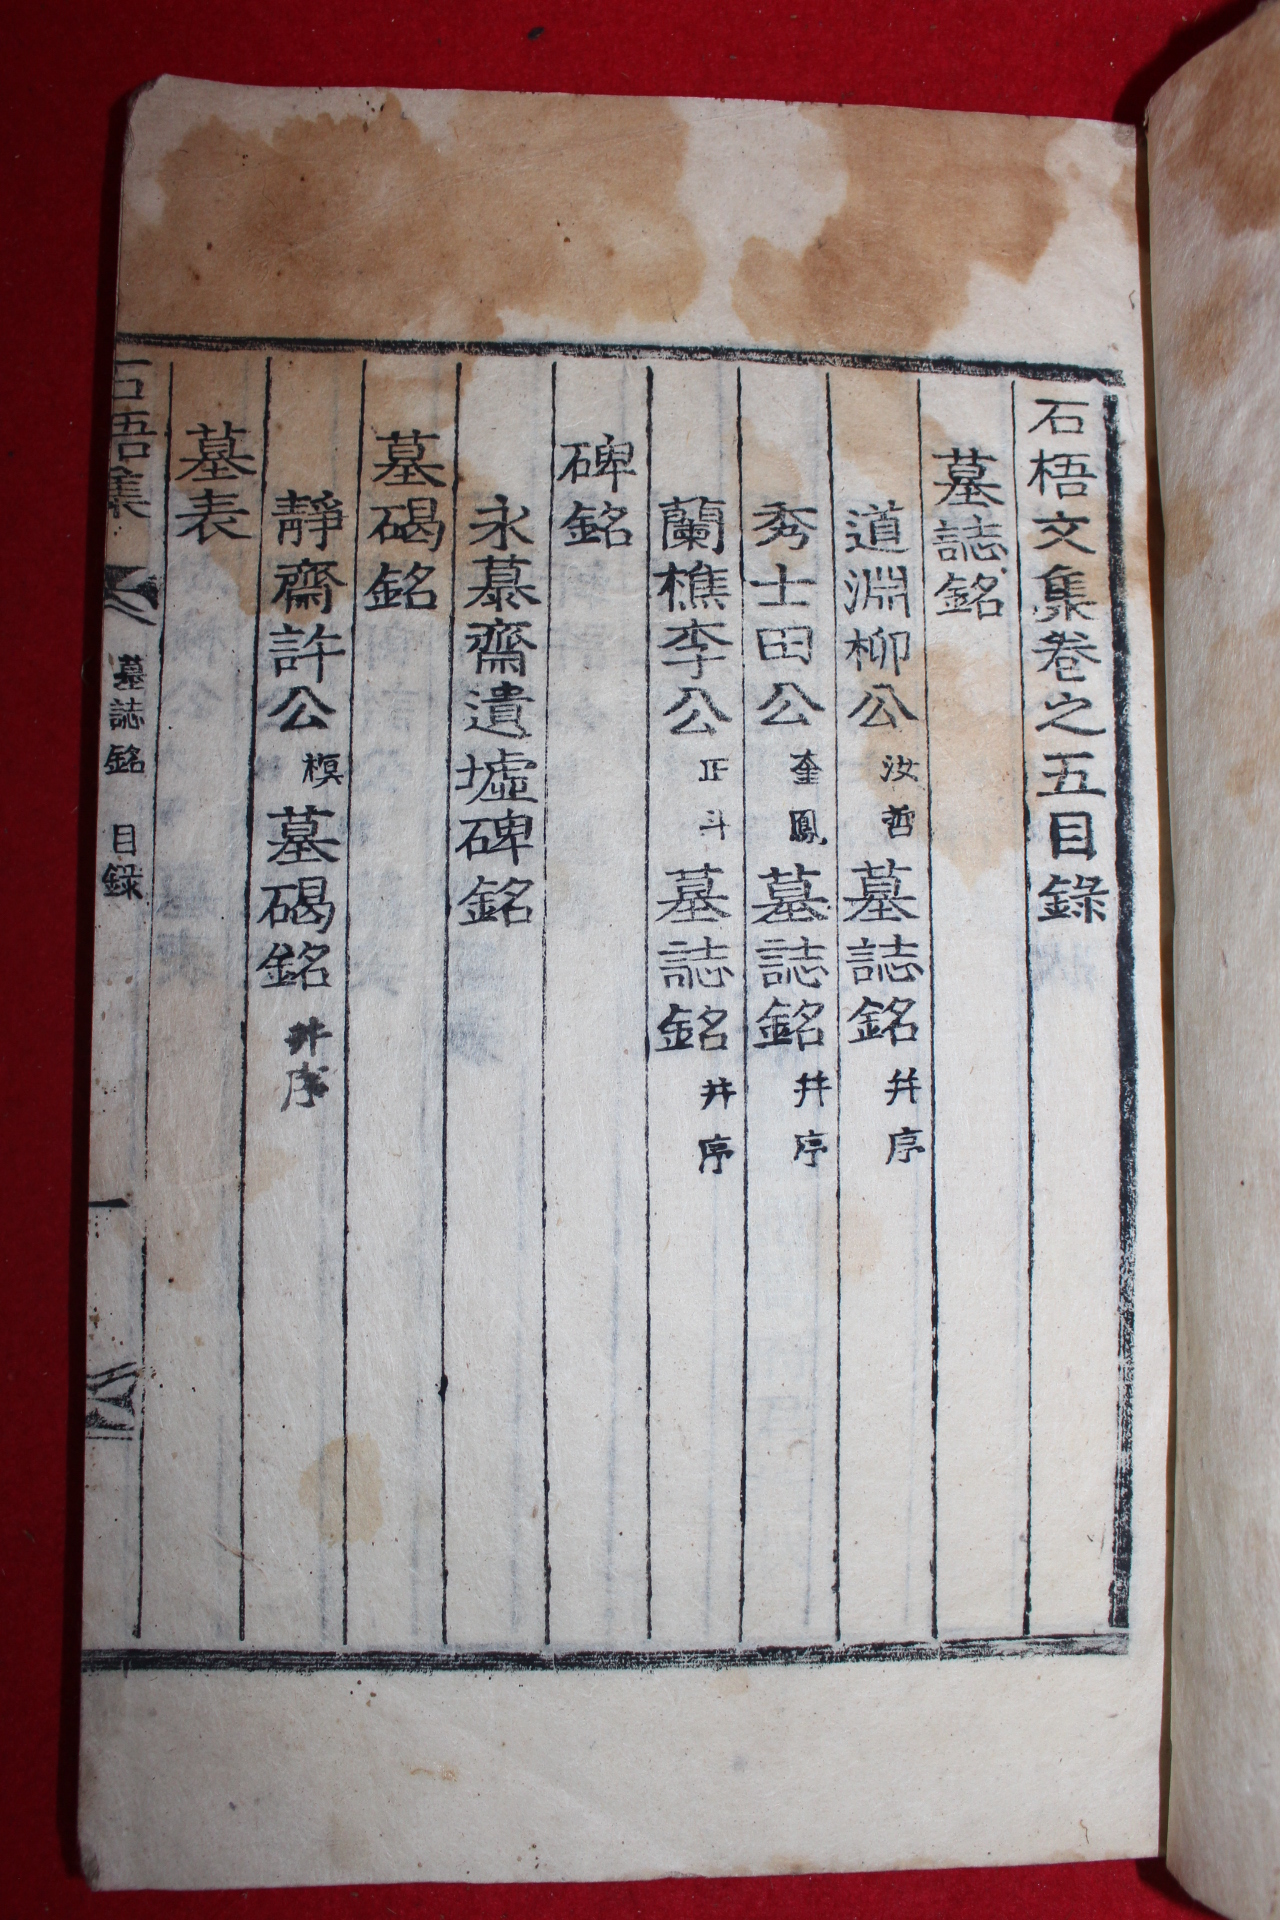 石梧文集卷之五目錄
墓誌銘
道淵柳公汝哲墓誌銘幷序
秀士田公奎鳳墓誌銘幷序
蘭樵李公正斗墓誌銘幷序
碑銘
永慕齋遺墟碑銘
墓碣銘
靜齋許公墓碣銘幷序
墓表
石梧集 墓誌銘 目錄 一